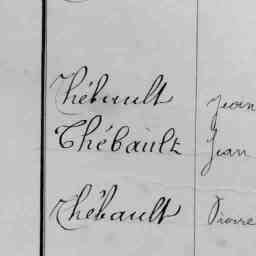 Thébault Jean
Thébault Jean
Thébault Pierre